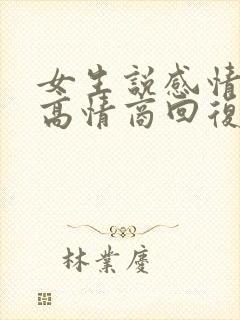 女生説感情
高情商回復
林業慶